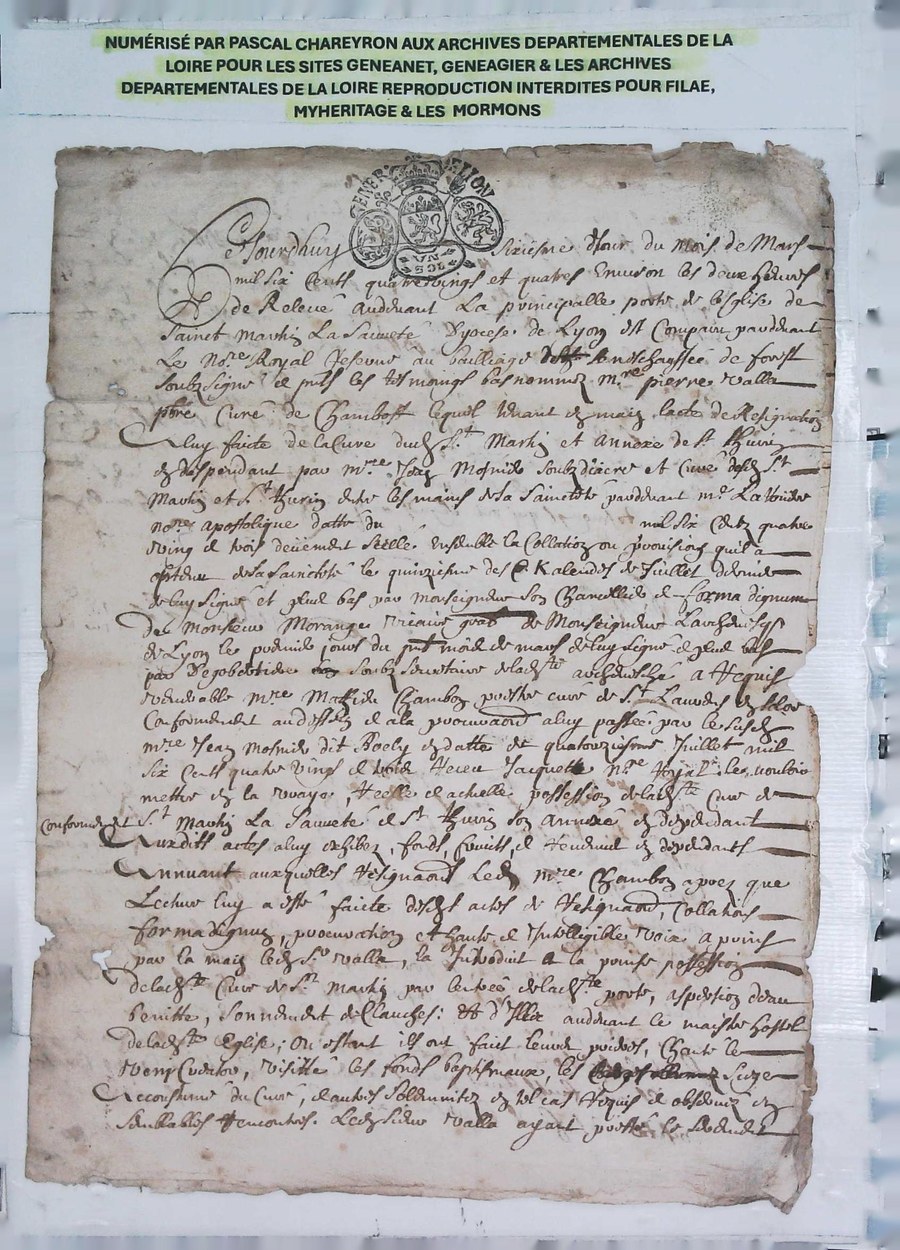 NUMÉRISÉ PAR PASCAL CHAREYRON AUX ARCHIVES DEPARTEMENTALES DE LA
LOIRE POUR LES SITES GENEANET, GENEAGIER & LES ARCHIVES
DEPARTEMENTALES DE LA LOIRE REPRODUCTION INTERDITES POUR FILAE,
MYHERITAGE & LES MORMONS
GENER LYON
UN SOL
Ce Jourdhuy sixiesme Jour du mois de Mars
mil six cents quatre vings et quatres Environ les deux heures
de Relevé audevant La principalle porte de lesglise de
Sainct Martin La Sauveté dyocese de Lyon est Comparu pardevant
Le No.re Royal Reservé au bailliage senechaussée de forest
soubzsigné et puis les tesmoings bas nommez m.re pierre valla
pbre Curé de Chambost lequel tenant en main lacte de Resignation
a luy faicte de la Cure dud St Martin et Annexe de St thurin
en despendant par m.re Jean soubzdiacre et Curé desd St
Martin et St thurin entre les mains de sa Saincteté pardevant m.e
no.re apostolique datte du mil six Centz quatre
ving et trois deüement scellé Ensemble la Collation ou provisions quil a
obtenu de sa Saincteté le quinziesme des Kalendes de Juillet dernier
de luy signé et plus bas par monseigneur son Chancellier et forma dignum
De Monsieur Morange vicaire gnal de Monseigneur Larchevesq
de Lyon le premier jour du pnt mois de mars de luy signé et plus bas
par soubz Secretaire de lad.te archevesché a Requis
venerable m.re Mathieu Chambon prestre curé de St Laurens
Conformement aud et a la procuraon a luy passée par le susd
m.re Jean dit Boely en datte du quatorziesme Juillet mil
six cents quatre vings et trois Receu Jacquette N.re Royal: le vouloir
mettre en la vraye, Reelle et actuelle possession de lad.te Cure de
St Martin La Sauveté et St thurin son annexe en despendant
Conformement
Ausdits actes a luy exhibez, fonds, fruits et Revenus en dependants
Annuant auxquelles Requisitions Led m.re Chambon apres que
Lecture luy a esté faicte desd actes de Resignaon, Collations
forma dignum, procuration et haute et Intelligible voix a prins
par la main led Sr valla, la Introduit a la possession
de lad.te Cure de St Martin par lentrée de lad.te porte, aspersion deau
benitte, sonnement de Clauches: Et d'Illec audevant le maistre hostel
de lad.te Eglise; ou estant ils ont fait leurs prieres, Chanté le
veni Creator, visitté les fonds baptismaux, les
accoustumé du Curé, et autres solemnitez en tel cas Requis et observez en
semblables Rencontres. Led sieur valla ayant presté le serment